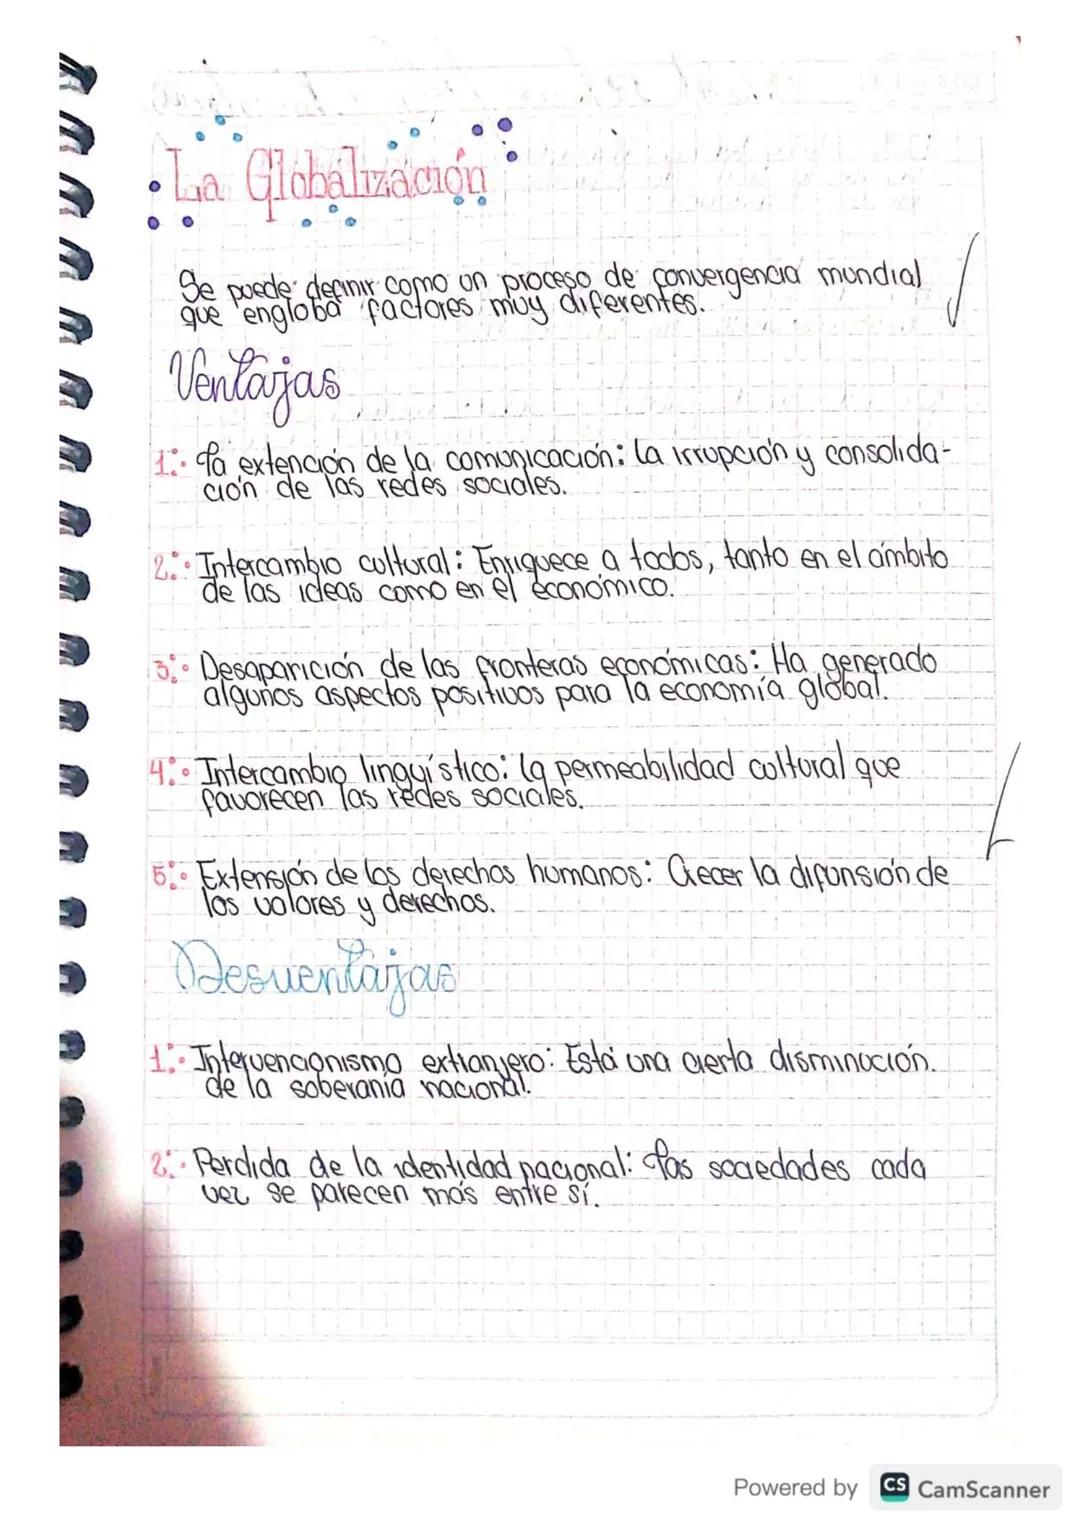 La Globalización
Se puede definir como un proceso de convergencia mundial
que engloba factores muy diferentes.
Ventajas
1. La extención de la comunicación: la irrupción y consolida-
ción de las redes sociales.
2. Intercambio cultural: Enriquece a todos, tanto en el ámbito
de las ideas como en el económico.
3. Desaparición de las fronteras económicas: Ha generado
algunos aspectos positivos para la economía global.
4. Intercambio linguístico: la permeabilidad cultural que
favorecen las redes sociales.
5. Extensión de los derechos humanos: Crecer la difunsión de
los valores y derechos.
Desventajas
1. Intervencionismo extranjero: Está una cierta disminución.
de la soberanía nacional.
2. Perdida de la identidad nacional: Las sociedades cada
vez se parecen más entre sí.
Powered by CS CamScanner